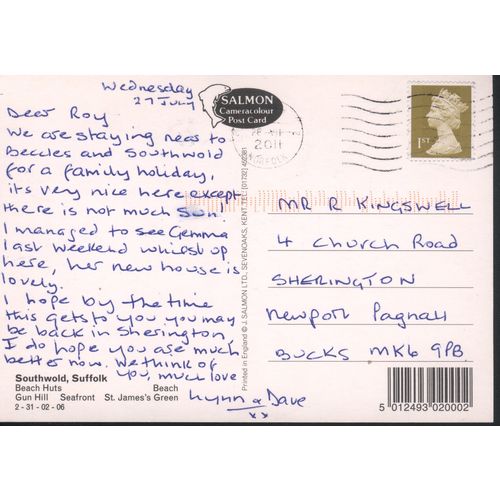 Wednesday
27 July
Dear Roy
We are staying near to
Beccles and Southwold
for a family holiday,
its very nice here except
there is not much Sun!
I managed to see Gemma
last weekend whilst up
here, her new house is
lovely.
I hope by the time
this gets to you you may
be back in Sherington
I do hope you are much
better now. We think of
you, much love
Lynn & Dave
xx
Southwold, Suffolk
Beach Huts Beach
Gun Hill Seafront St. James's Green
2 - 31 - 02 - 06
SALMON
Cameracolour
Post Card
Printed in England © J. SALMON LTD., SEVENOAKS, KENT. TEL: (01732) 452381
2011
1ST
MR R KINGSWELL
4 Church Road
SHERINGTON
Newport Pagnall
BUCKS MK6 9PB.
5 012493 020002